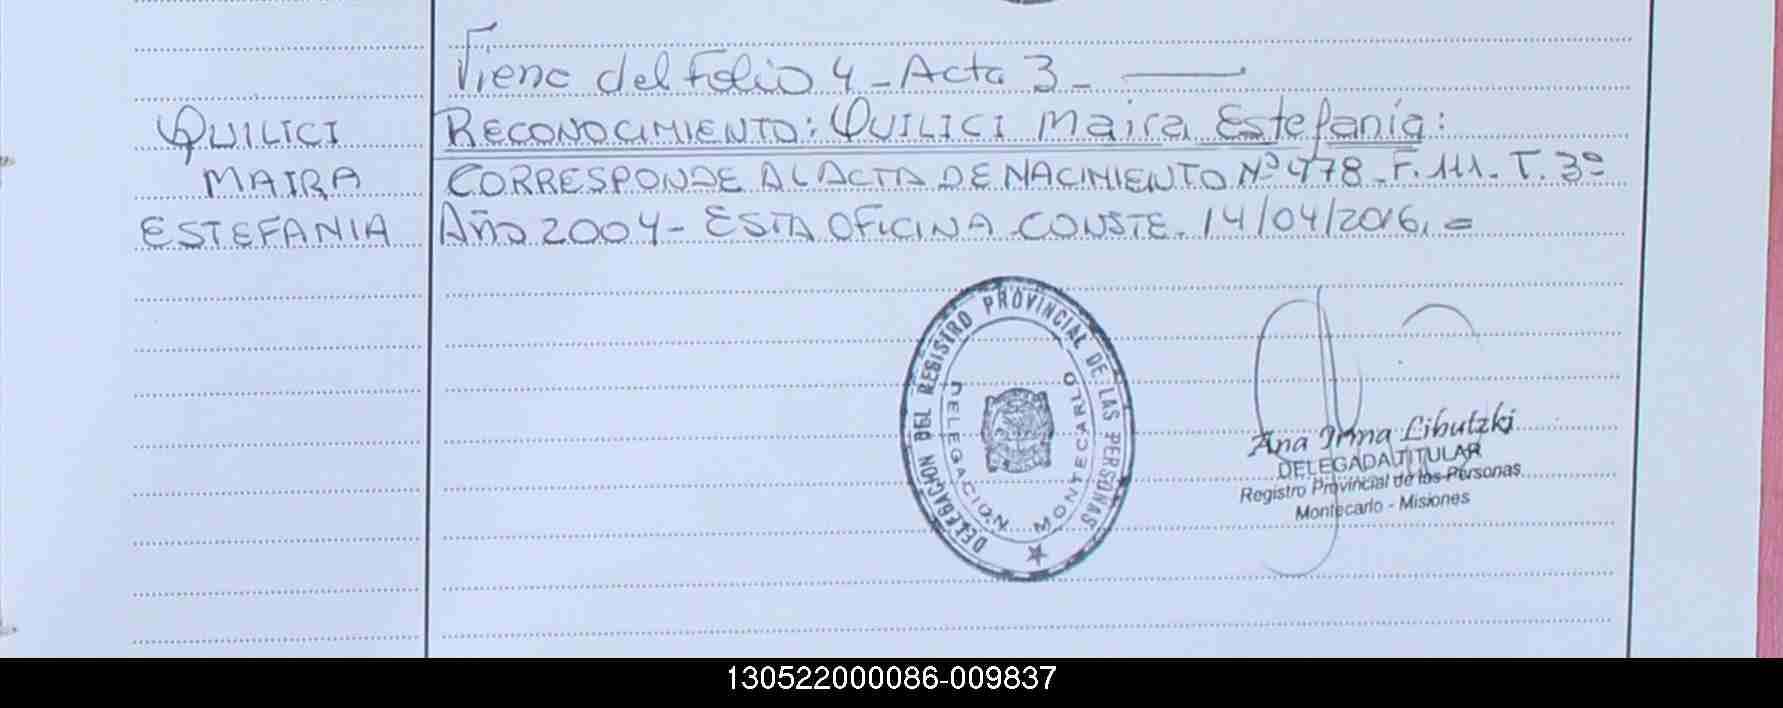 Viene del Folio 4 - Acta 3 -
QUILICI
MAIRA
ESTEFANIA
RECONOCIMIENTO: QUILICI Maira Estefanía:
CORRESPONDE AL ACTA DE NACIMIENTO Nº 478 - F. 111 - T. 3º
Año 2004 - ESTA OFICINA CONSTE - 14/04/2016. =
DELEGACION DEL REGISTRO PROVINCIAL DE LAS PERSONAS
DELEGACION MONTECARLO
Ana Irma Libutzki
DELEGADA TITULAR
Registro Provincial de las Personas
Montecarlo - Misiones
130522000086-009837